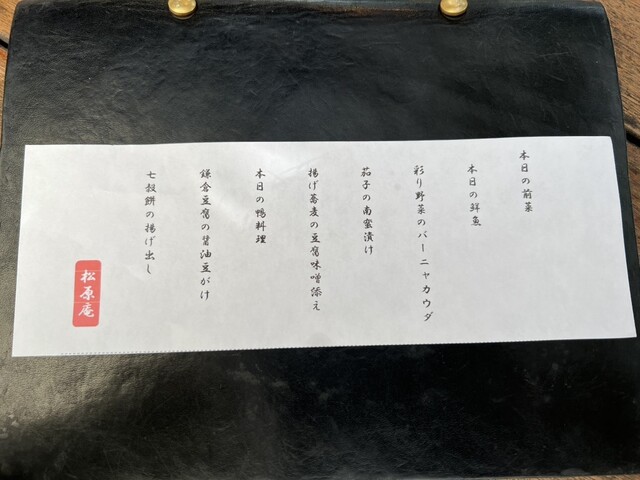 本日の前菜
本日の鮮魚
彩り野菜のバーニャカウダ
茄子の南蜜漬け
揚げ蕎麦の豆腐味噌添え
本日の鴨料理
鎌倉豆腐の醤油豆がけ
七穀餅の揚げ出し
松原庵